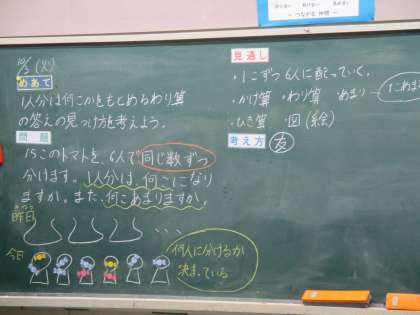 ～ つながる 仲間 ～
10/5 (火)
めあて
1人分は何こかをもとめるわり算
の答えの見つけ方を考えよう。
問題
15このトマトを、6人で同じ数ずつ
分けます。1人分は、何こになり
ますか。また、何こあまりますか。
昨日
・・・
今日
何人に分けるか
決まっている
見通し
・1こずつ6人に配っていく。
・かけ算 ・わり算 あまり 1こあま
・ひき算 ・図(絵)
考え方 友